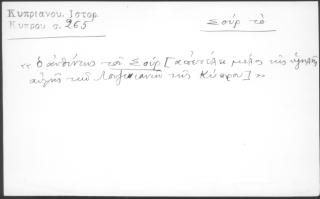 Κυπριανου. Ιστορ.
Κυπρου σ. 265
Σούρ τὸ
« ὁ αὐθέντης τοῦ Σούρ [ἀπετέλει μέλος τῆς ὑψηλῆς
αὐλῆς τῶν Λουζινιανῶν τῆς Κύπρου] »